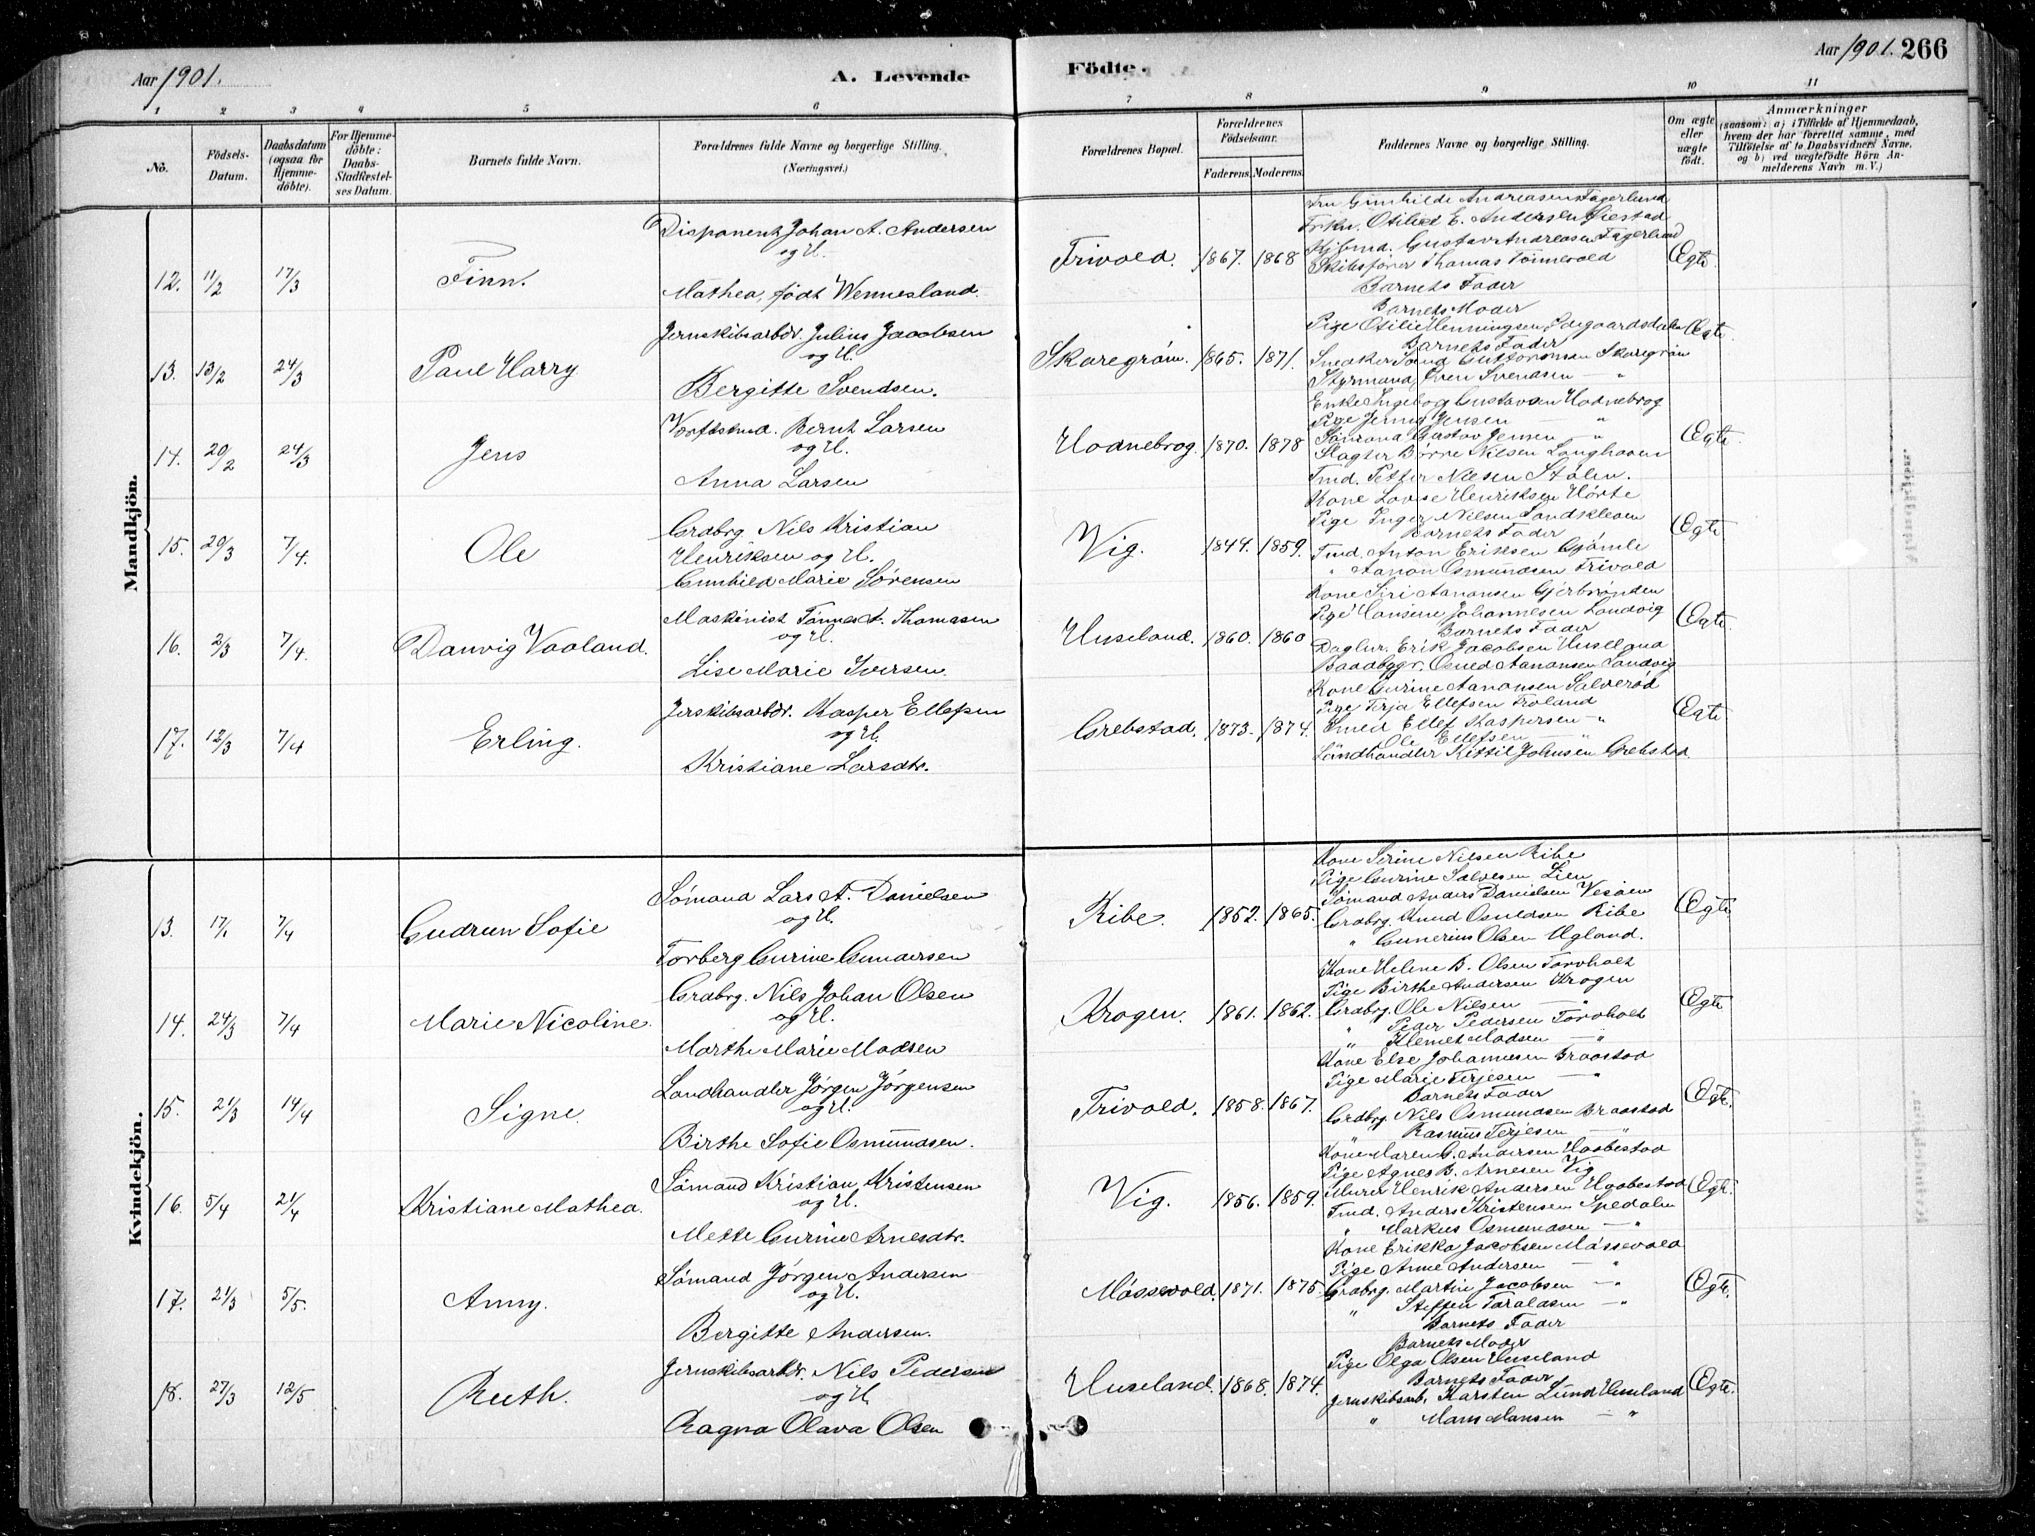 Aar 1901.
A. Levende
Födte.
Aar 1901. 266
1 2 3 4 5 6 7 8 9 10 11
No.
Födsels-Datum.
Daabsdatum (ogsaa for Hjemmedöbte).
For Hjemmedöbte: Daabs-Stadfæstelses Datum.
Barnets fulde Navn.
Forældrenes fulde Navne og borgerlige Stilling. (Næringsvei.)
Forældrenes Bopæl.
Forældrenes Födselsaar.
Faderens. Moderens.
Faddernes Navne og borgerlige Stilling.
Om ægte eller uægte födt.
Anmærkninger
(saasom: a) i Tilfælde af Hjemmedaab, hvem der har forrettet samme, med Tilföielse af to Daabsvidners Navne, og b) ved uægtefödte Börn Anmelderens Navn m. V.)
Mandkjön.
12. 11/2 17/3 Finn.
Disponent Johan A. Andersen
og H.
Mathea, født Wennesland.
Trivold. 1867. 1868
Fru Gunhilde Andreasen Fagerlund
Frkn. Otilie E. Andersen
Kjbmd. Gustav Andreasen Fagerlund
Skibsfører Thomas Tønnevold
Barnets Fader
Barnets Moder
Egte.
13. 13/2 24/3 Paul Harry
Jernskibsarbdr. Julius Jacobsen
og H.
Bergitte Svendsen.
Skaregrøm. 1865. 1871.
Pige Otilie Henningsen
Barnets Fader
Guttormsen Skaregrøm
Styrmand Sven Svendsen — "
Egte
14. 20/2 24/3 Jens
Værftsmd. Bernt Larsen
og H.
Anna Larsen
Hodnebrog. 1870. 1878
Enke Ingeborg Gustavsen Hodnebrog
Pige Jenny Jensen — "
Sømand Gustav Jensen — "
Slagter Børre Nilsen Langhaven
Tmd. Petter Nilsen Stølen.
Egte.
15. 20/3 7/4. Ole
Grdbrg Nils Kristian
Henriksen og H.
Gunhild Marie Sørensen
Vig. 1849. 1859.
Kone Lovise Henriksen Hørte
Pige Inger Nilsen Landkleven
Barnets Fader
Tmd. Anton Eriksen Gjømle
" Aanon Osmundsen Trivold
Egte
16. 2/3 7/4. Danvig Vaaland.
Maskinist Tønnes A. Thomasen
og H.
Lise Marie Iversen.
Huseland. 1860. 1860
Kone Siri Aanonsen Gjerbrønden
Pige Hansine Johannesen Landvig
Barnets Fader
Daglnr. Erik Jacobsen Huseland
Baadbyggr. Osmed Aanonsen Landvig
Egte.
17. 12/3 7/4 Erling.
Jerskibsarbdr. Kasper Ellefsen
og H.
Kristiane Larsdtr.
Grebstad. 1873. 1874.
Kone Gurine Aanonsen Salverød
Pige Terja Ellefsen Froland
Smed Ellef Kaspersen — "
Ole Ellefsen — "
Landhandler Kittil Johnsen Grebstad
Egte.
Kvindekjön.
13. 17/1 7/4 Gudrun Sofie
Sømand Lars A. Danielsen
og H.
Torberg Gurine Gundersen
Ribe. 1852. 1865.
Kone Serine Nilsen Ribe
Pige Gurine Salvesen Lien
Sømand Anders Danielsen Vesøen
Grdbrg. Knud Osuldsen Ribe
" Gunerius Olsen Ugland.
Egte
14. 24/3 7/4 Marie Nicoline.
Grdbrg. Nils Johan Olsen
og H.
Marthe Marie Madsen
Krogen. 1861. 1862.
Kone Helene B. Olsen Torvholt
Pige Birthe Andersen Krogen
Grdbrg. Ole Nilsen — "
" Peder Pedersen Torvholt
" Klemet Madsen — "
Egte
15. 21/3 14/4 Signe.
Landhandler Jørgen Jørgensen
og H.
Birthe Sofie Osmundsen.
Trivold. 1858. 1867.
Kone Else Johannesen Braastad
Pige Marie Terjesen — "
Barnets Fader
Grdbrg. Nils Osmundsen Braastad
" Rasmus Terjesen — "
Egte.
16. 5/4 21/4 Kristiane Mathea.
Sømand Kristian Kristensen
og H.
Mette Gurine Arnesdtr.
Vig. 1856. 1859.
Kone Maren G. Andersen Haabestad
Pige Agnes B. Arnesen Vig
Murer Henrik Andersen Haabestad
Tmd. Anders Kristensen Spedalen
" Markus Osmundsen — "
Egte.
17. 21/3 5/5. Anny.
Sømand Jørgen Andersen
og H.
Bergitte Andersen.
Møssevold. 1871. 1875.
Kone Erikka Jacobsen Møssevold
Pige Anne Andersen — "
Grdbrg. Martin Jacobsen — "
" Steffen Taraldsen — "
Barnets Fader
Egte.
18. 27/3 12/5 Ruth.
Jernskibsarbdr. Nils Pedersen
og H.
Ragna Olava Olsen
Huseland. 1868. 1874.
Barnets Moder
Pige Olga Olsen Huseland
Barnets Fader
Jernskibsarb. Karsten Lund Huseland
" Mans Mansen — "
Egte.